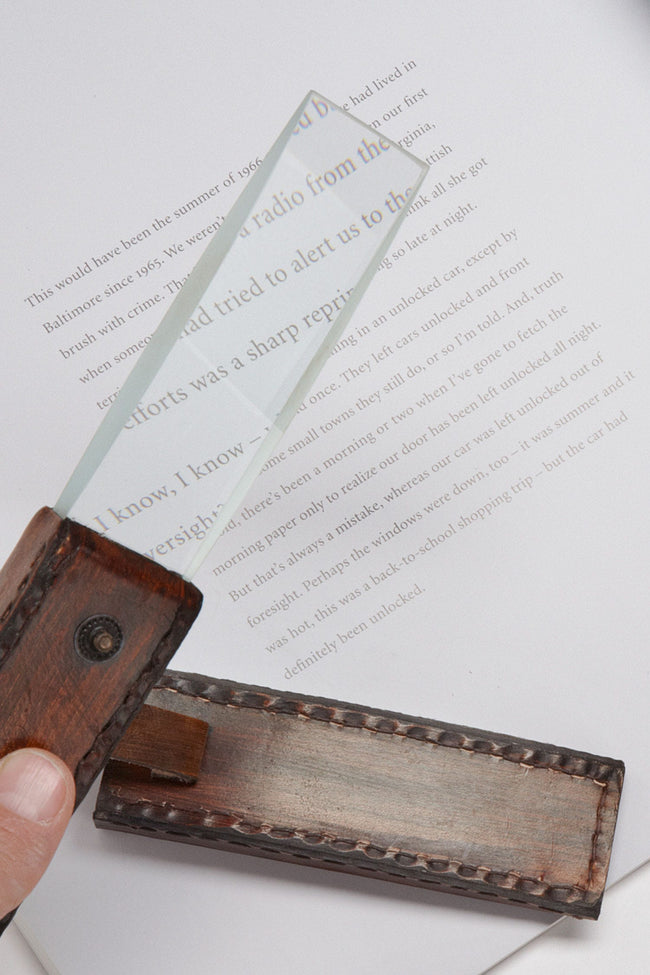 This would have been the summer of 1966 had lived in
Baltimore since 1965. We our first
brush with crime.
when a radio from the
had tried to alert us to the all she got
efforts was a sharp so late at night.
I know, I know – in an unlocked car, except by
once. They left cars unlocked and front
small towns they still do, or so I'm told. And, truth
there's been a morning or two when I've gone to fetch the
morning paper only to realize our door has been left unlocked all night.
But that's always a mistake, whereas our car was left unlocked out of
foresight. Perhaps the windows were down, too – it was summer and it
was hot, this was a back-to-school shopping trip – but the car had
definitely been unlocked.